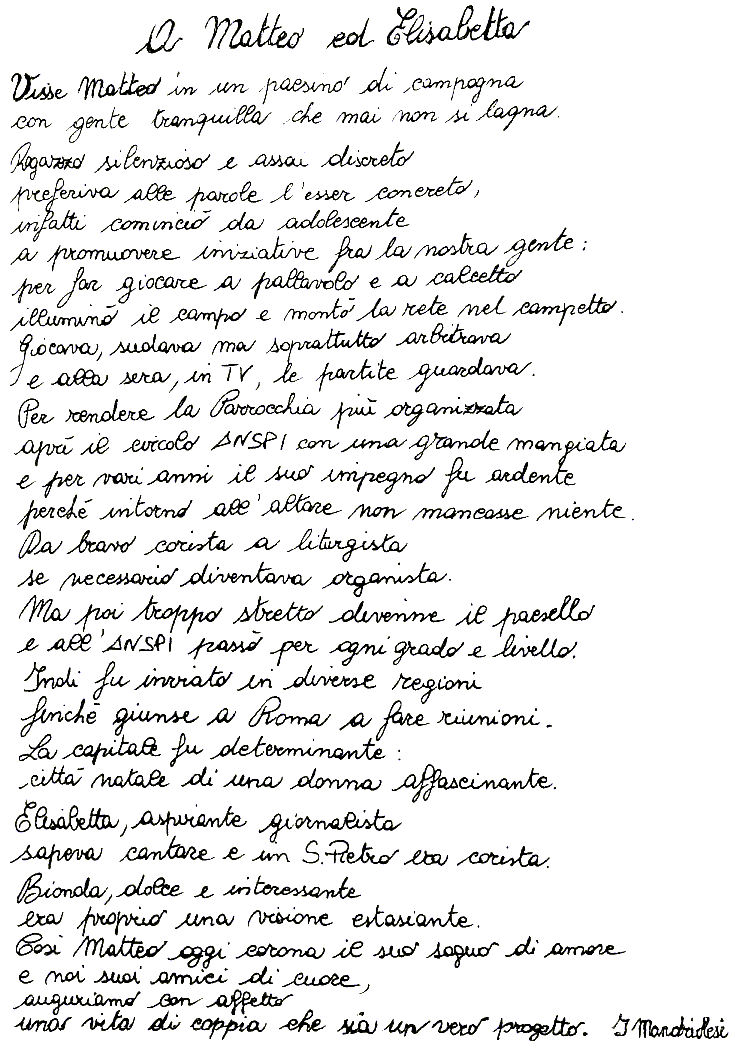 A Matteo ed Elisabetta
Visse Matteo in un paesino di campagna
con gente tranquilla che mai non si lagna.
Ragazzo silenzioso e assai discreto
preferiva alle parole l'esser concreto,
infatti cominciò da adolescente
a promuovere iniziative fra la nostra gente:
per far giocare a pallavolo e a calcetto
illuminò il campo e montò la rete nel campetto.
Giocava, sudava ma soprattutto arbitrava
e alla sera, in TV, le partite guardava.
Per rendere la Parrocchia più organizzata
aprì il circolo ANSPI con una grande mangiata
e per vari anni il suo impegno fu ardente
perché intorno all'altare non mancasse niente.
Da bravo corista a liturgista
se necessario diventava organista.
Ma poi troppo stretto divenne il paesello
e all'ANSPI passò per ogni grado e livello.
Indi fu inviato in diverse regioni
finché giunse a Roma a fare riunioni.
La capitale fu determinante:
città natale di una donna affascinante.
Elisabetta, aspirante giornalista
sapeva cantare e in S.Pietro era corista.
Bionda, dolce e interessante
era proprio una visione estasiante.
Così Matteo oggi corona il suo sogno di amore
e noi suoi amici di cuore,
auguriamo con affetto
una vita di coppia che sia un vero progetto. I Mandriolesi